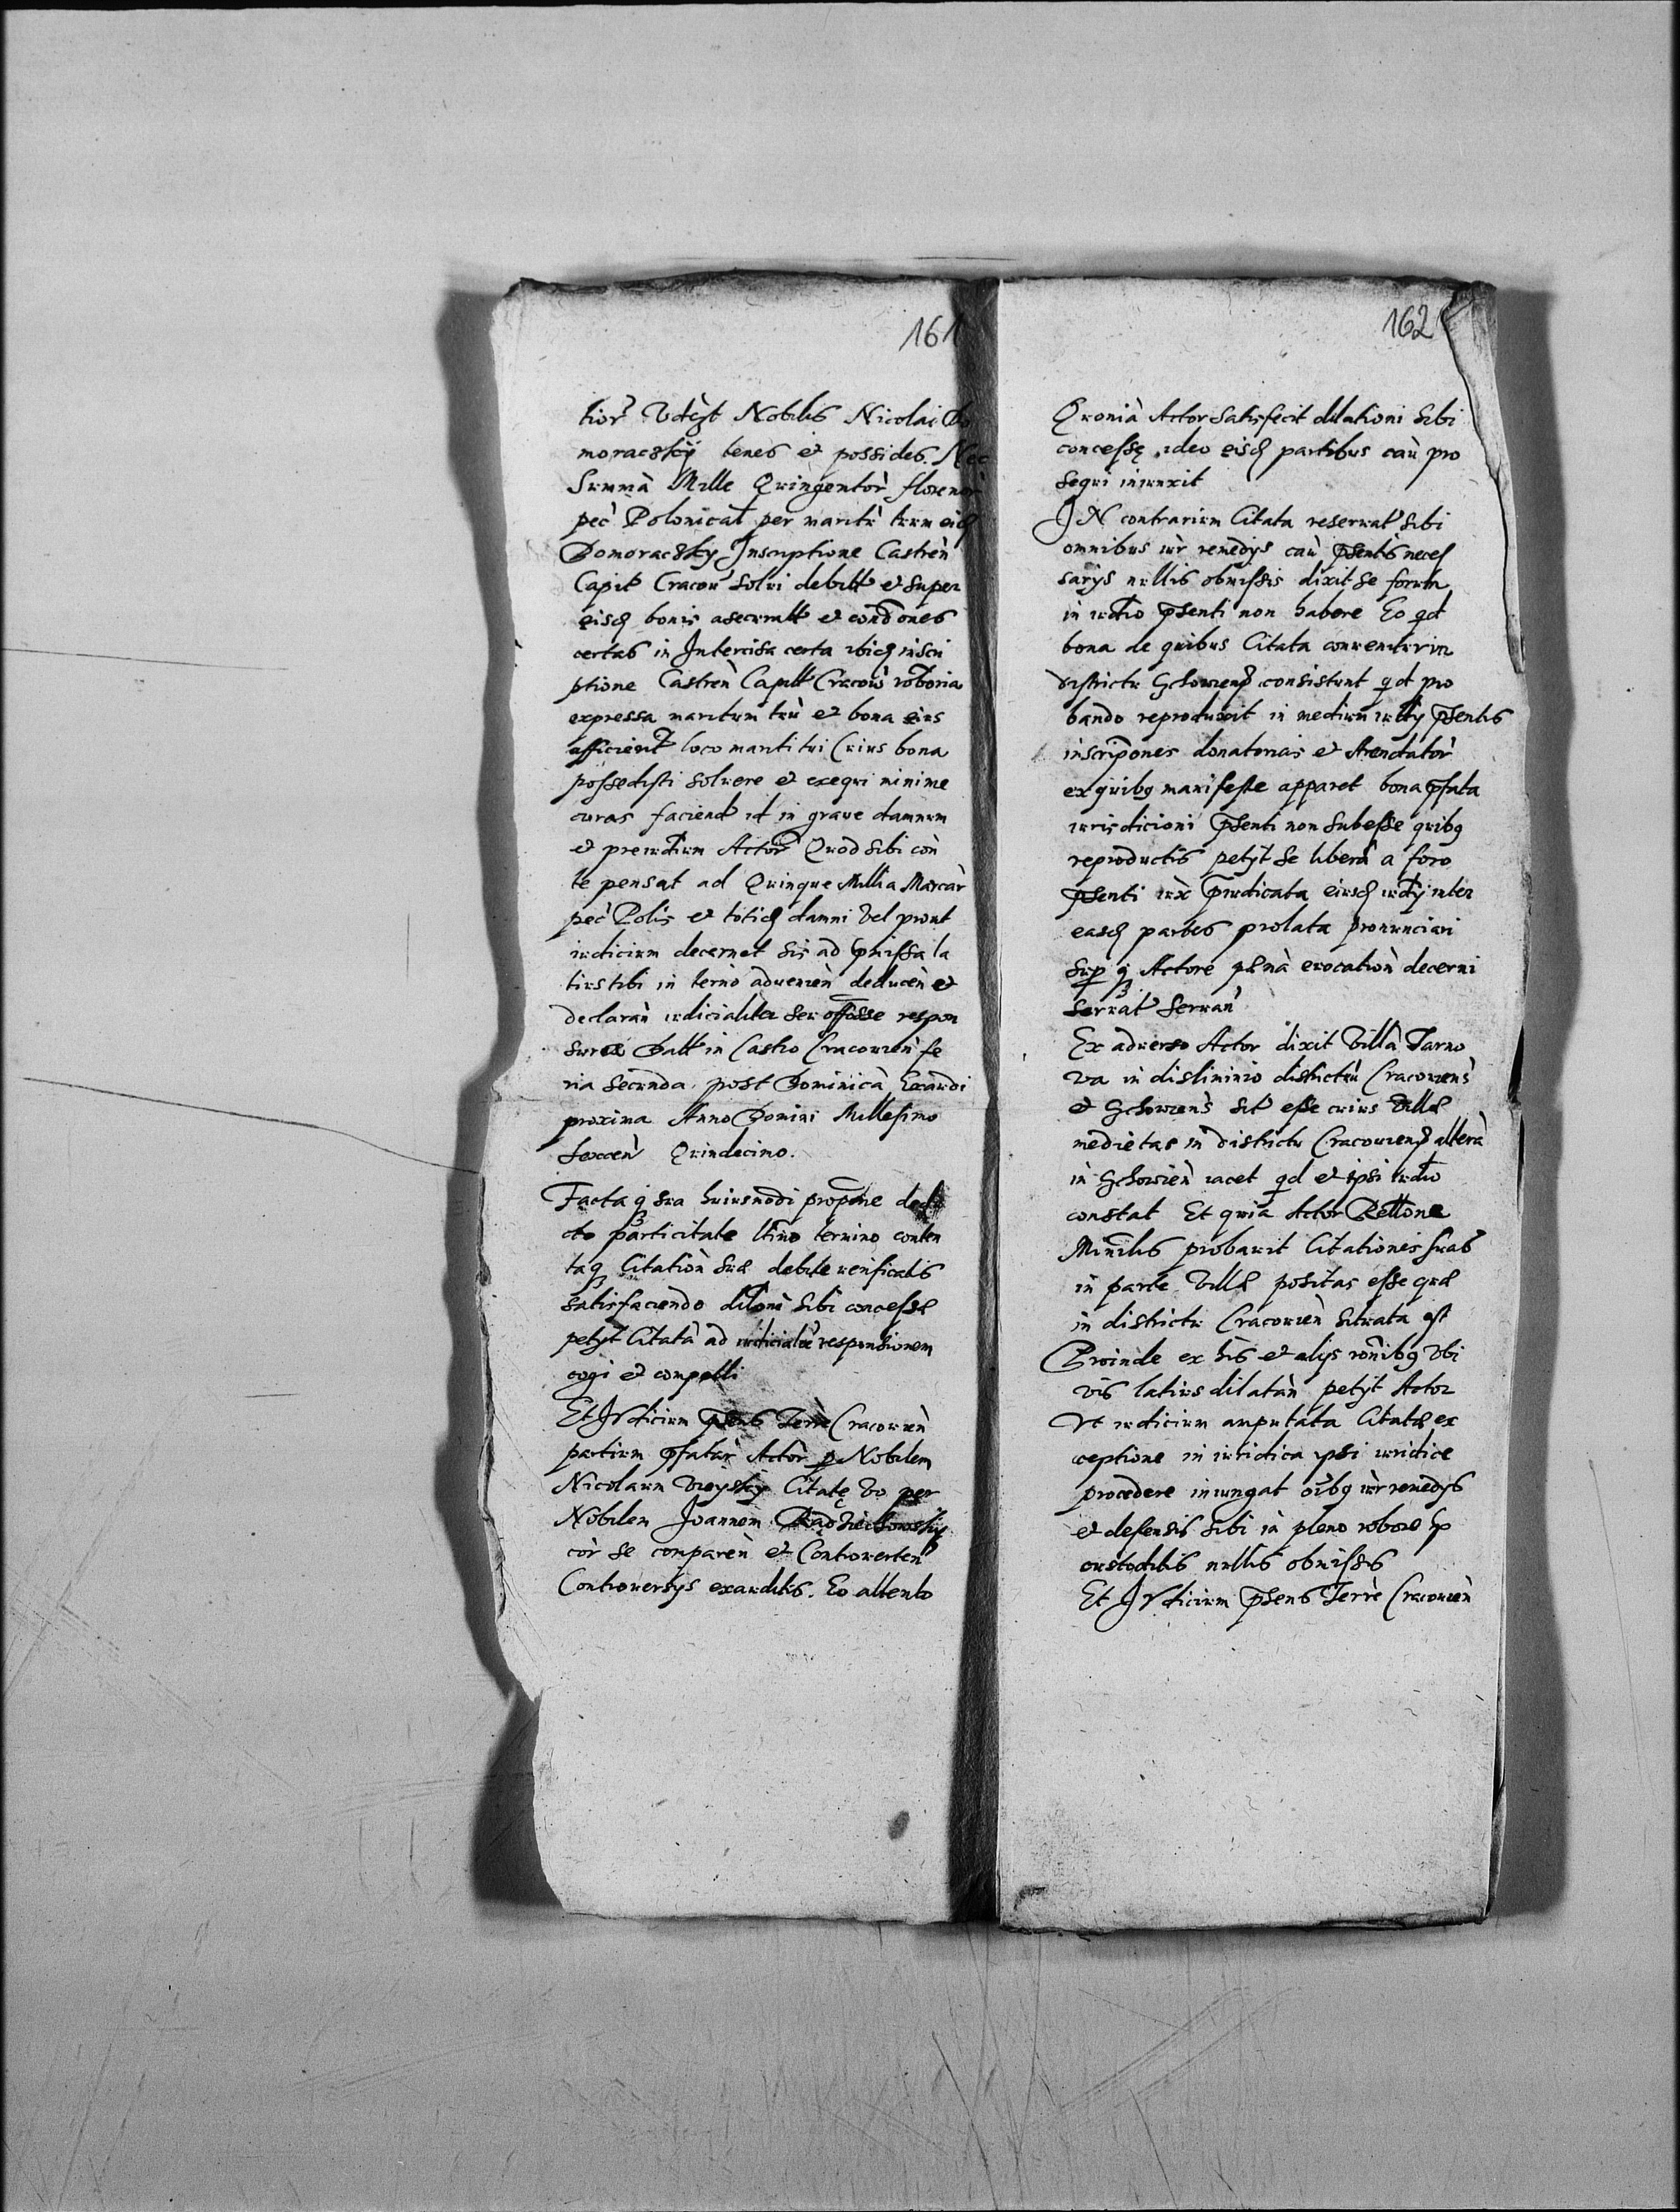 161
tior Vdczt Nobilis Nicolai Do
moraczkÿ tenes et possides. Nec
Summã Mille Quingentor florenor
pec Polonical per maritũ tuum eisd
Domoraczky Inscriptione Castreñ
Capit Cracou solui debitt et super
eisd bonis asecuratt et condones
certas in Intercisa certa ibid inscri
ptione Castreñ Capitt Cracou roboria
expressa maritum tuũ et bona eius
afficient loco mariti tui Cuius bona
possedisti soluere et exequi minime
curas faciend id in graue damnum
et preiudium Actor Quod sibi con
te pensat ad Quinque Millia Marcar
pec Polis et totid damni vel prout
iudicium decernet Sis ad pmissa la
tius tibi in termo adueneñ deduceñ et
declarañ iudicialiter seu offosse respon
sura Datt in Castro Cracouieñ fe
ria secunda post Dominicã Exaudi
proxima Anno Domini Millesimo
sexceñ Quindecimo.
Facta q sua huiusmodi propone dedu
cto particitate ltimo termino conten
taq Citation suæ debite verificatis
satisfaciendo diloni sibi concessæ
petyt Citatã ad iudicialem responsionem
cogi et compelli
Et Iudicium psens Terre Cracouieñ
partium pfatar Actor p Nobilem
Nicolaum Vieysky Citatę vo per
Nobilem Joannem Radziechowsky
cor se compareñ et Controuerten
Controuersys exauditis. Eo attento
162
Quoniã Actor satisfecit dilationi sibi
concessę ideo eisd partibus cau pro
sequi iniunxit
IN contrarium Citata reseruat sibi
omnibus iur remedys cau psentis neces
sarys nullis obmissis dixit se forum
in iudio psenti non habere Eo qd
bona de quibus Citata conuenitur in
districtu Xchouiens consistunt qd pro
bando reproduxit in medium iudty psentis
inscripones donatorias et Arendator
ex quibq manifeste apparet bona pfata
iurisdicioni psenti non subesse quibq
reproductis petyt se liberã a foro
psenti iux piudicata eiusd iudty inter
easd partes prolata pronunciari
Sup q Actore pænã euocation decerni
seruat seruan
Ex aduerso Actor dixit Villã Tarno
va in disliminio districtuu Cracouiens
et Xchouiens sit esse cuius villæ
medietas in districtu Cracouiens alterã
in Xchouien iacet qd et ipsi iudio
constat Et quia Actor Rettone
Minilis probauit Citationes suas
in parte villæ positas esse quæ
in districtu Cracouien situata est
Proinde ex his et alys ronibq vbi
vis latius dilatañ petyt Actor
Vt iudicium amputata Citatæ ex
ceptione in iuridica ipsi iuridice
procedere iniungat oibq iur remedys
et defensis sibi in pleno robore sp
custoditis nullis obmissis
Et Iudicium psens Terre Cracouien